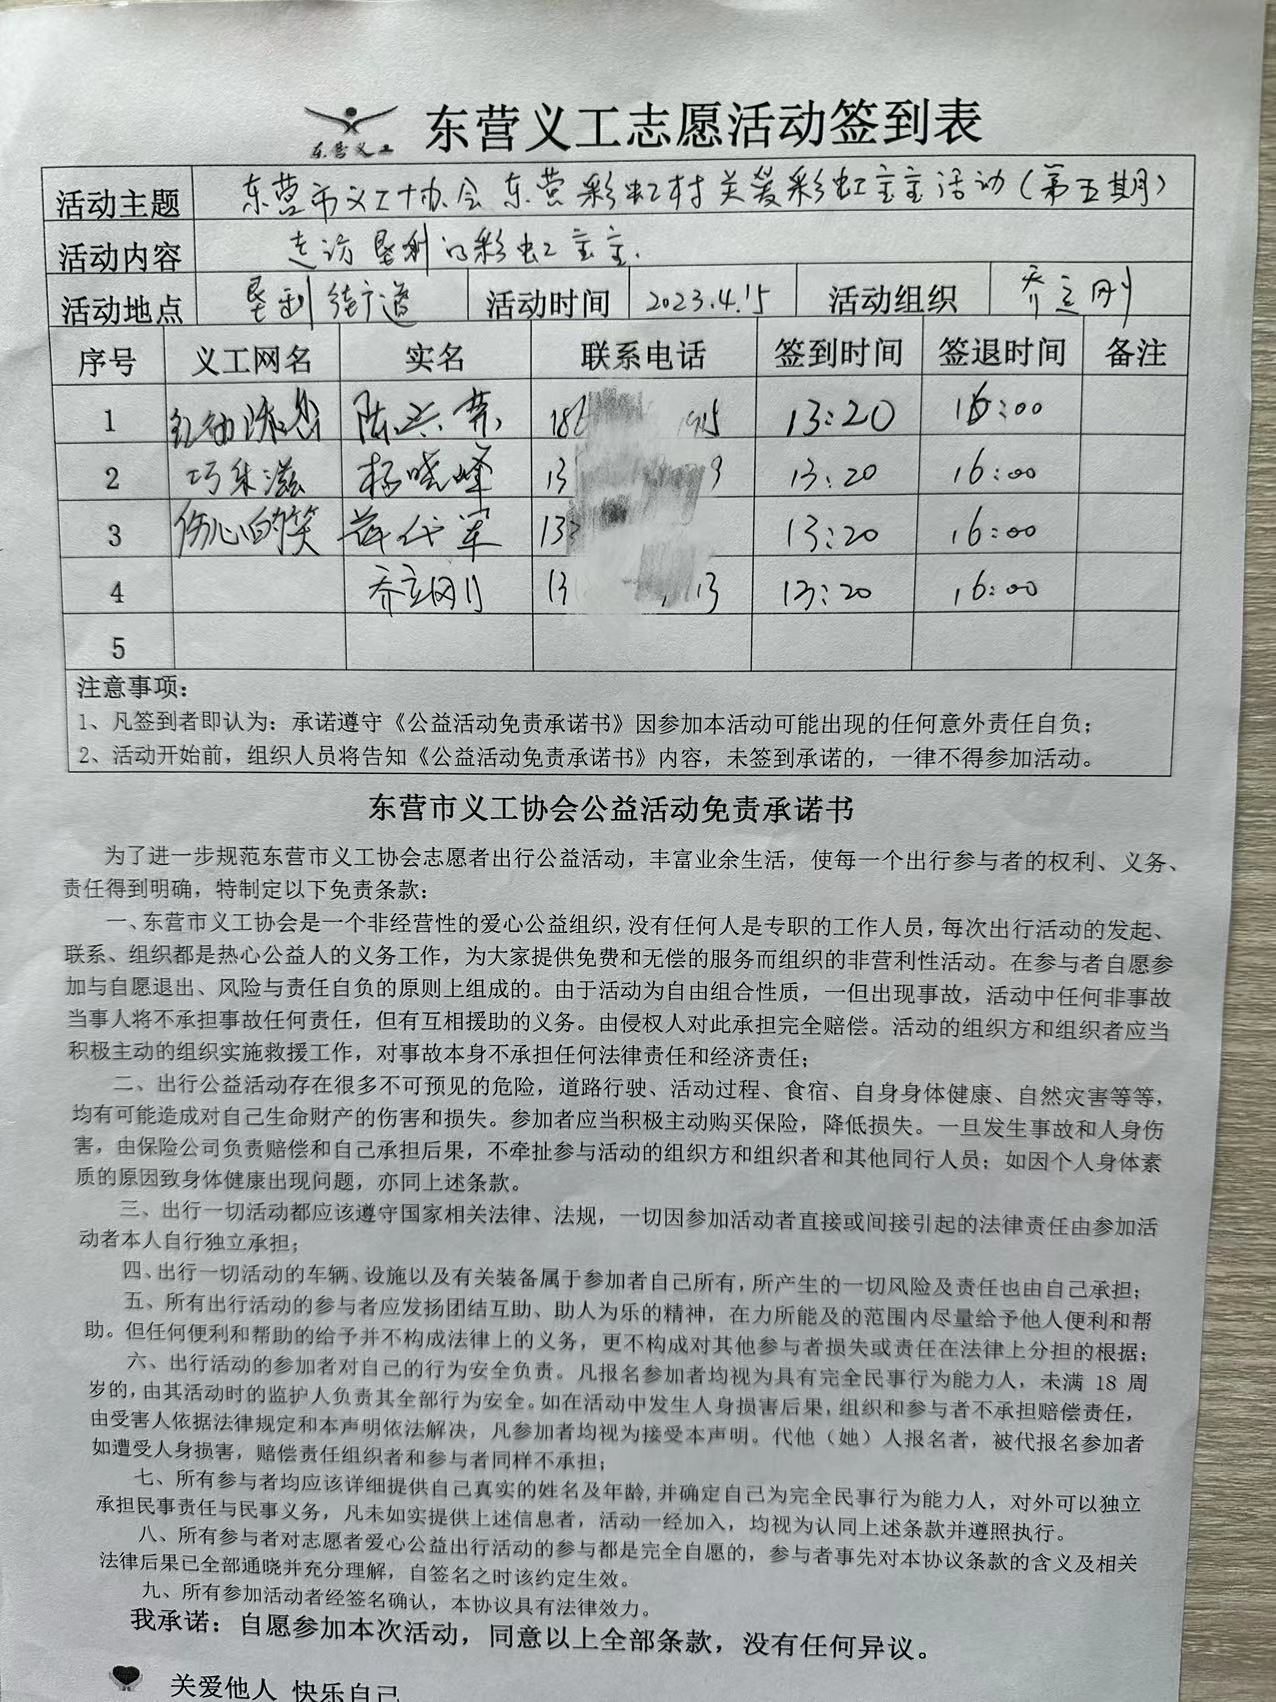 东营义工
东营义工志愿活动签到表
活动主题 东营市义工协会东营彩虹村关爱彩虹宝宝活动(第五期)
活动内容 走访垦利的彩虹宝宝.
活动地点 垦利街道 活动时间 2023.4.15 活动组织 乔立刚
序号 义工网名 实名 联系电话 签到时间 签退时间 备注
1 陈兴荣 13:20 16:00
2 巧朱滋 杨晓峰 13 9 13:20 16:00
3 伤心的笑 薛代军 13 13:20 16:00
4 乔立刚 13 13 13:20 16:00
5
注意事项:
1、凡签到者即认为:承诺遵守《公益活动免责承诺书》因参加本活动可能出现的任何意外责任自负;
2、活动开始前,组织人员将告知《公益活动免责承诺书》内容,未签到承诺的,一律不得参加活动。
东营市义工协会公益活动免责承诺书
为了进一步规范东营市义工协会志愿者出行公益活动,丰富业余生活,使每一个出行参与者的权利、义务、
责任得到明确,特制定以下免责条款:
一、东营市义工协会是一个非经营性的爱心公益组织,没有任何人是专职的工作人员,每次出行活动的发起、
联系、组织都是热心公益人的义务工作,为大家提供免费和无偿的服务而组织的非营利性活动。在参与者自愿参
加与自愿退出、风险与责任自负的原则上组成的。由于活动为自由组合性质,一但出现事故,活动中任何非事故
当事人将不承担事故任何责任,但有互相援助的义务。由侵权人对此承担完全赔偿。活动的组织方和组织者应当
积极主动的组织实施救援工作,对事故本身不承担任何法律责任和经济责任;
二、出行公益活动存在很多不可预见的危险,道路行驶、活动过程、食宿、自身身体健康、自然灾害等等,
均有可能造成对自己生命财产的伤害和损失。参加者应当积极主动购买保险,降低损失。一旦发生事故和人身伤
害,由保险公司负责赔偿和自己承担后果,不牵扯参与活动的组织方和组织者和其他同行人员;如因个人身体素
质的原因致身体健康出现问题,亦同上述条款。
三、出行一切活动都应该遵守国家相关法律、法规,一切因参加活动者直接或间接引起的法律责任由参加活
动者本人自行独立承担;
四、出行一切活动的车辆、设施以及有关装备属于参加者自己所有,所产生的一切风险及责任也由自己承担;
五、所有出行活动的参与者应发扬团结互助、助人为乐的精神,在力所能及的范围内尽量给予他人便利和帮
助。但任何便利和帮助的给予并不构成法律上的义务,更不构成对其他参与者损失或责任在法律上分担的根据;
六、出行活动的参加者对自己的行为安全负责。凡报名参加者均视为具有完全民事行为能力人,未满 18 周
岁的,由其活动时的监护人负责其全部行为安全。如在活动中发生人身损害后果,组织和参与者不承担赔偿责任,
由受害人依据法律规定和本声明依法解决,凡参加者均视为接受本声明。代他(她)人报名者,被代报名参加者
如遭受人身损害,赔偿责任组织者和参与者同样不承担;
七、所有参与者均应该详细提供自己真实的姓名及年龄,并确定自己为完全民事行为能力人,对外可以独立
承担民事责任与民事义务,凡未如实提供上述信息者,活动一经加入,均视为认同上述条款并遵照执行。
八、所有参与者对志愿者爱心公益出行活动的参与都是完全自愿的,参与者事先对本协议条款的含义及相关
法律后果已全部通晓并充分理解,自签名之时该约定生效。
九、所有参加活动者经签名确认,本协议具有法律效力。
我承诺:自愿参加本次活动,同意以上全部条款,没有任何异议。
关爱他人 快乐自己